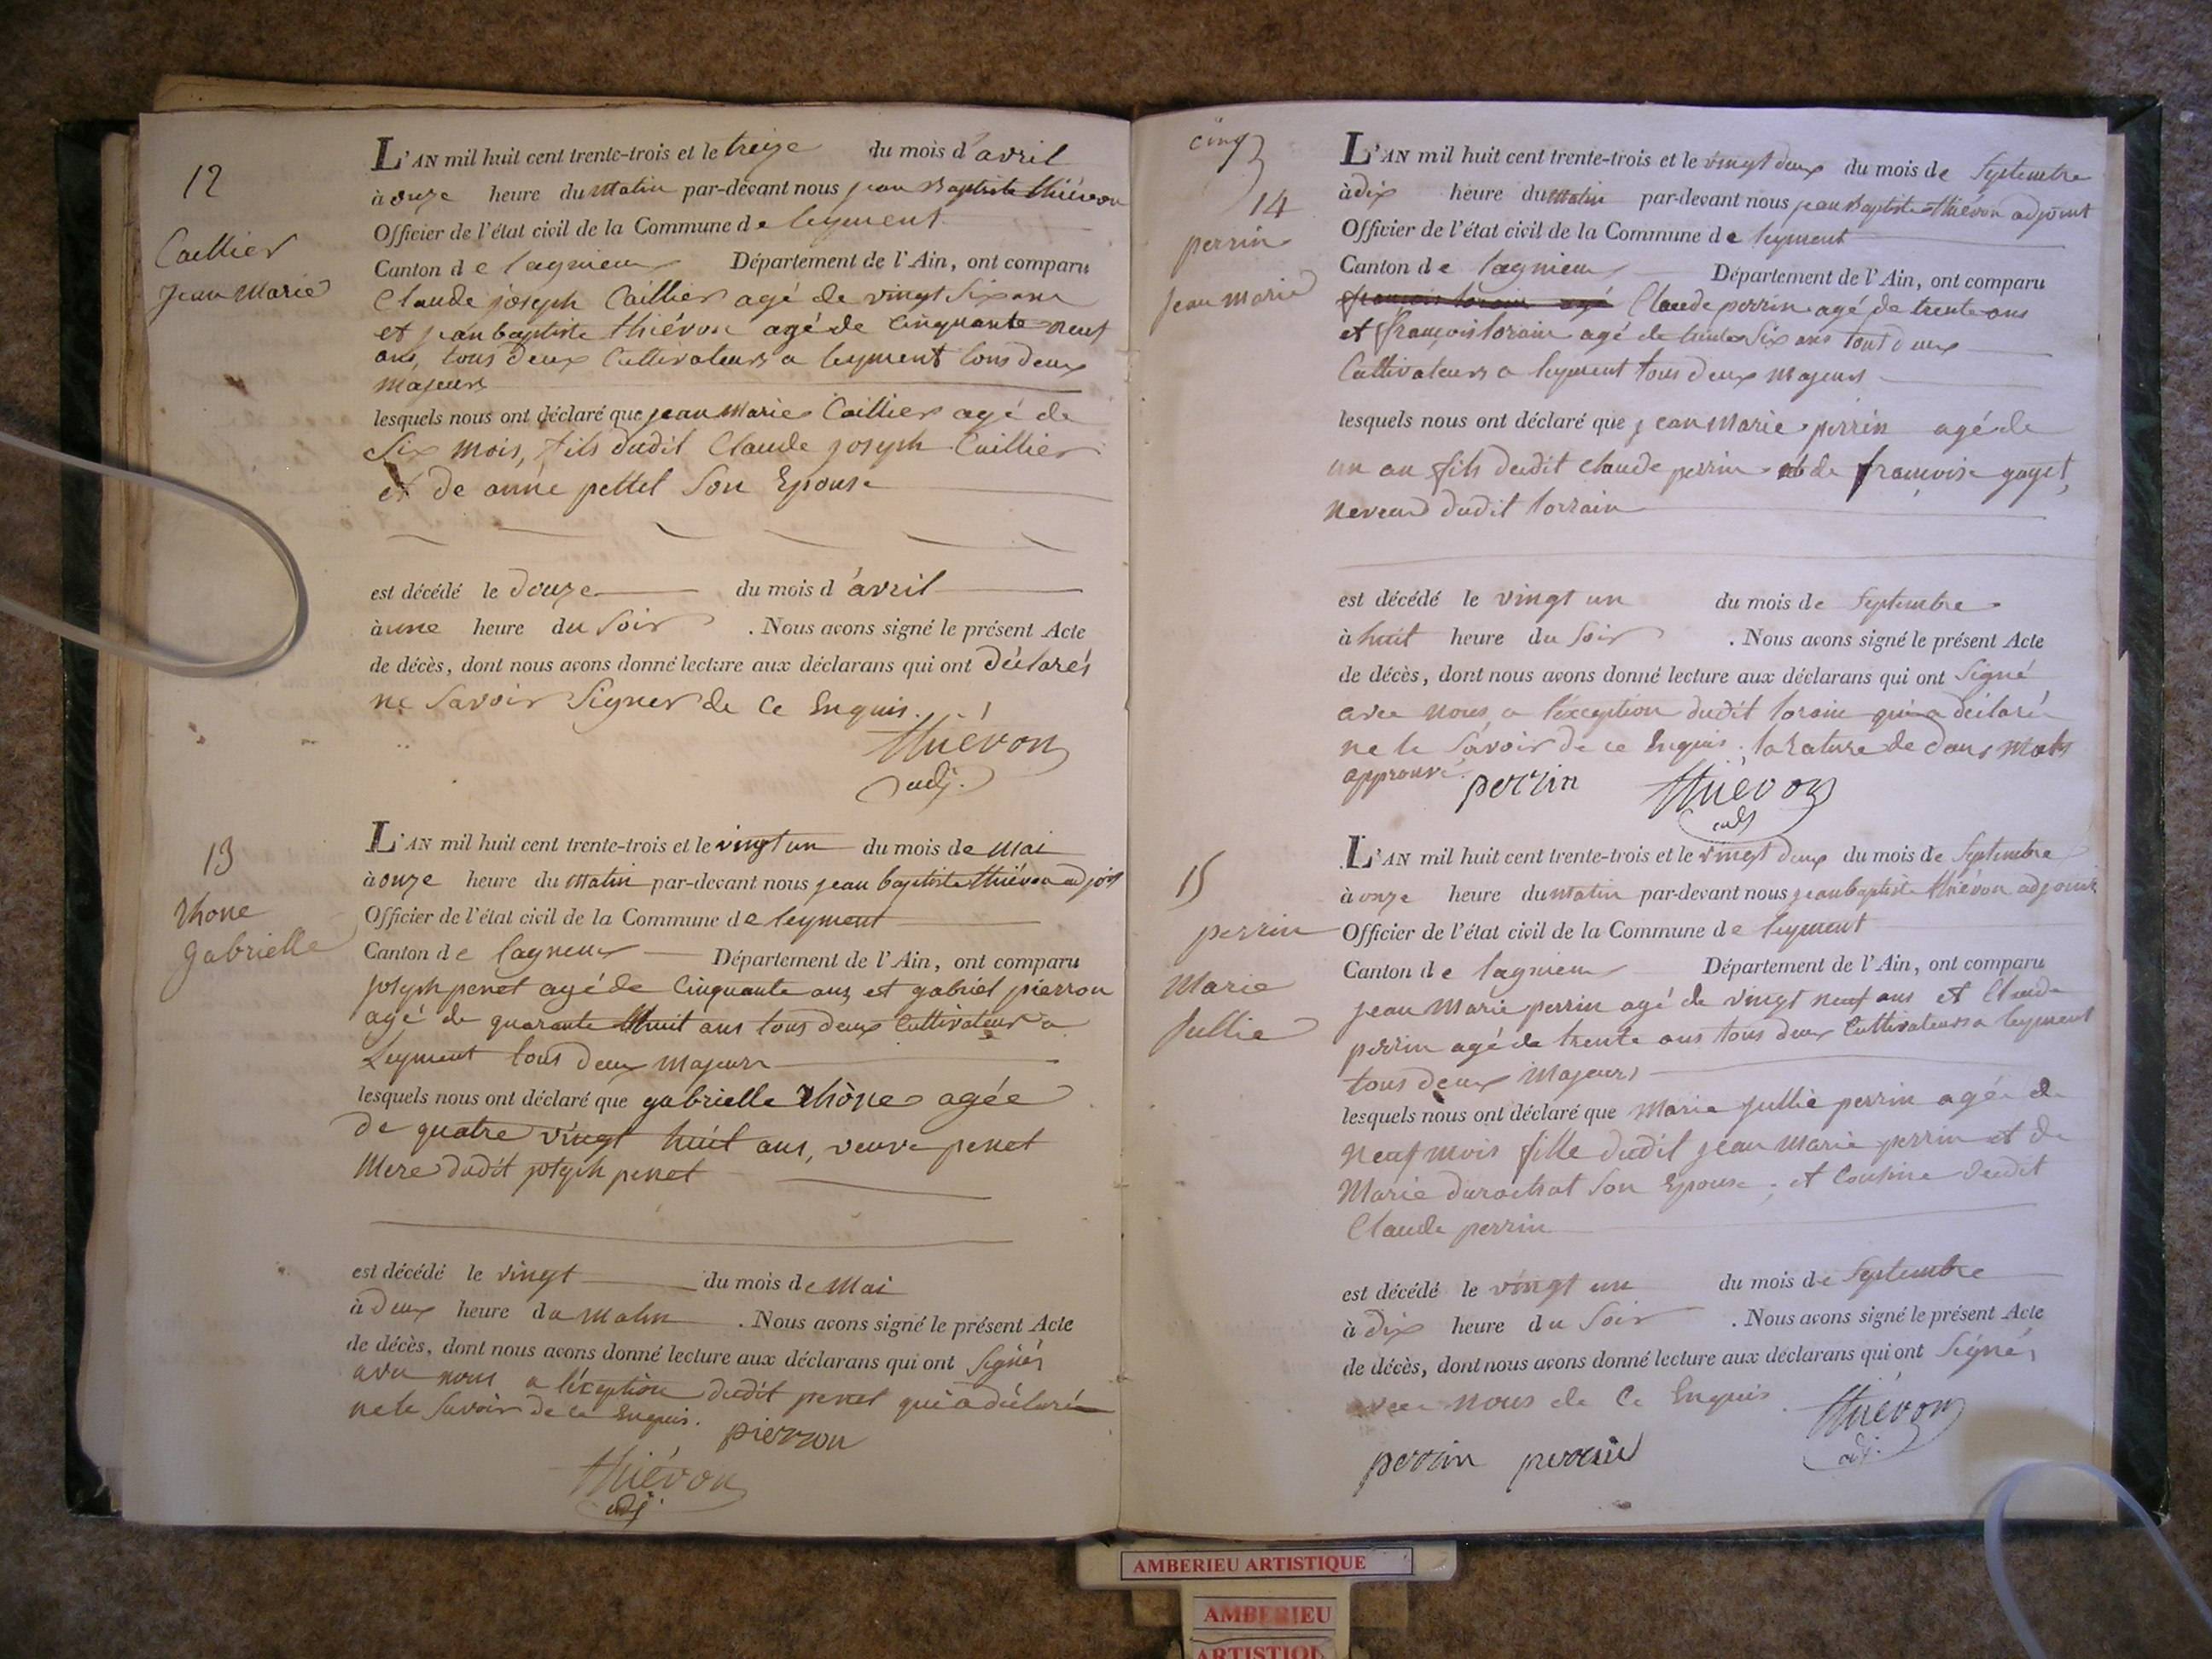 12
Caillier
Jean Marie
L'AN mil huit cent trente-trois et le treize du mois d'avril
à onze heure du matin par-devant nous jean Baptiste thiévon
Officier de l'état civil de la Commune de leyment
Canton de lagnieu Département de l'Ain, ont comparu
Claude joseph Caillier agé de vingt Six ans
et jean baptiste thiévon agé de Cinquante neuf
ans, tous deux Cultivateurs a leyment tous deux
majeurs
lesquels nous ont déclaré que jean Marie Caillier agé de
Six mois, fils dudit Claude joseph Caillier
et de anne pettel Son Epouse
est décédé le douze du mois d'avril
à une heure du Soir . Nous avons signé le présent Acte
de décès, dont nous avons donné lecture aux déclarans qui ont déclarés
ne Savoir Signer de Ce Enquis.
thiévon
adj.
13
rhone
gabrielle
L'AN mil huit cent trente-trois et le vingt un du mois de Mai
à onze heure du matin par-devant nous jean baptiste thiévon adjoit
Officier de l'état civil de la Commune de leyment
Canton de lagnieu Département de l'Ain, ont comparu
joseph penet agé de Cinquante ans et gabriel pierron
agé de quarante huit ans tous deux Cultivateur a
Leyment tous deux majeurs
lesquels nous ont déclaré que gabrielle rhône agée
de quatre vingt huit ans, veuve penet
Mere dudit joseph penet
est décédé le vingt du mois de Mai
à deux heure du Matin . Nous avons signé le présent Acte
de décès, dont nous avons donné lecture aux déclarans qui ont Signés
avec nous a l'éxception dudit penet qui a déclaré
ne le Savoir de ce Enquis.
pierron
thiévon
adj.
cinq
14
perrin
jean marie
L'AN mil huit cent trente-trois et le vingt deux du mois de Septembre
à dix heure du matin par-devant nous jean Baptiste thiévon adjoint
Officier de l'état civil de la Commune de leyment
Canton de lagnieu Département de l'Ain, ont comparu
françois lorain agé Claude perrin agé de trente ans
et françois lorain agé de trente Six ans tout deux
Cultivateurs a leyment tous deux majeurs
lesquels nous ont déclaré que jean Marie perrin agé de
un an fils dudit claude perrin et de françoise goyet,
neveud dudit lorrain
est décédé le vingt un du mois de Septembre
à huit heure du Soir . Nous avons signé le présent Acte
de décès, dont nous avons donné lecture aux déclarans qui ont Signé
avec nous, a l'éxception dudit lorain qui a déclaré
ne le Savoir de ce Enquis. la rature de dans mots
approuvé.
perrin thiévon
adj
15
perrin
Marie
Jullie
L'AN mil huit cent trente-trois et le vingt deux du mois de Septembre
à onze heure du matin par-devant nous jean baptiste thiévon adjoint
Officier de l'état civil de la Commune de leyment
Canton de lagnieu Département de l'Ain, ont comparu
jean Marie perrin agé de vingt neuf ans et Claude
perrin agé de trente ans tous deux Cultivateurs a leyment
tous deux Majeurs
lesquels nous ont déclaré que Marie Jullie perrin agée de
neuf mois fille dudit jean Marie perrin et de
Marie durochat Son Epouse, et Cousine dudit
Claude perrin
est décédé le vingt un du mois de Septembre
à dix heure du Soir . Nous avons signé le présent Acte
de décès, dont nous avons donné lecture aux déclarans qui ont Signés
avec nous de Ce Enquis.
thiévon
adj.
perrin perrin
AMBERIEU ARTISTIQUE
AMBERIEU
ARTISTIQ